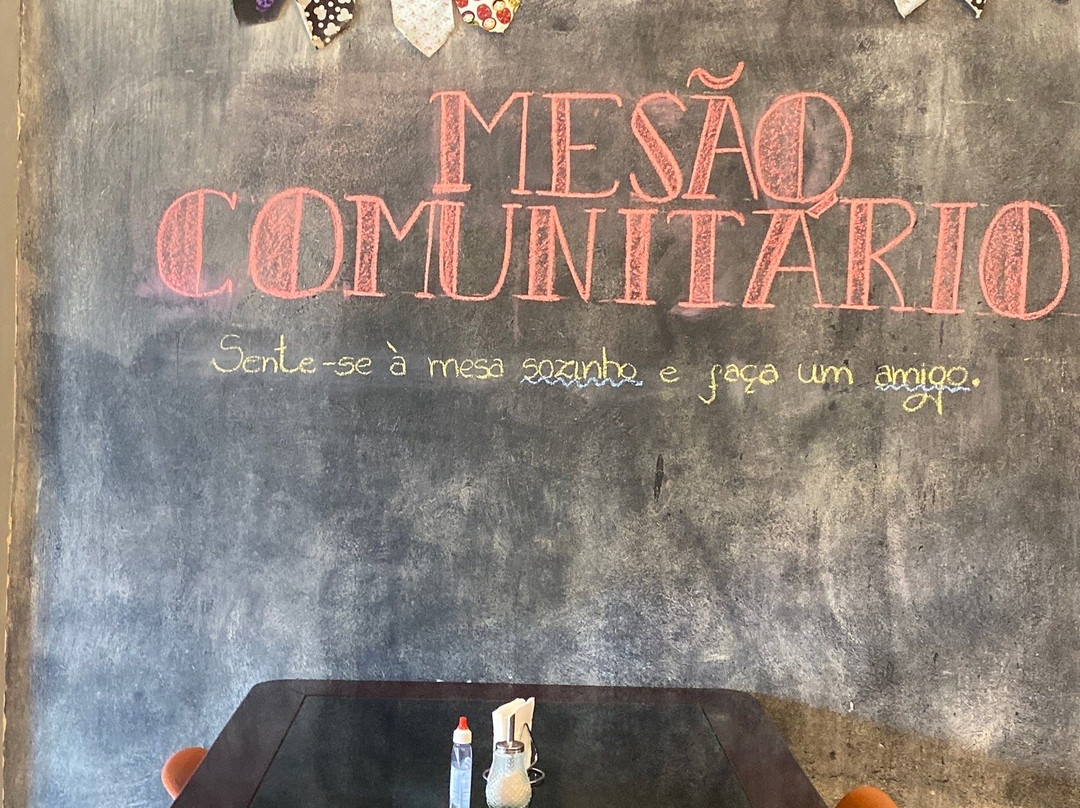 MESÃO
COMUNITÁRIO
Sente-se à mesa sozinho e faça um amigo.